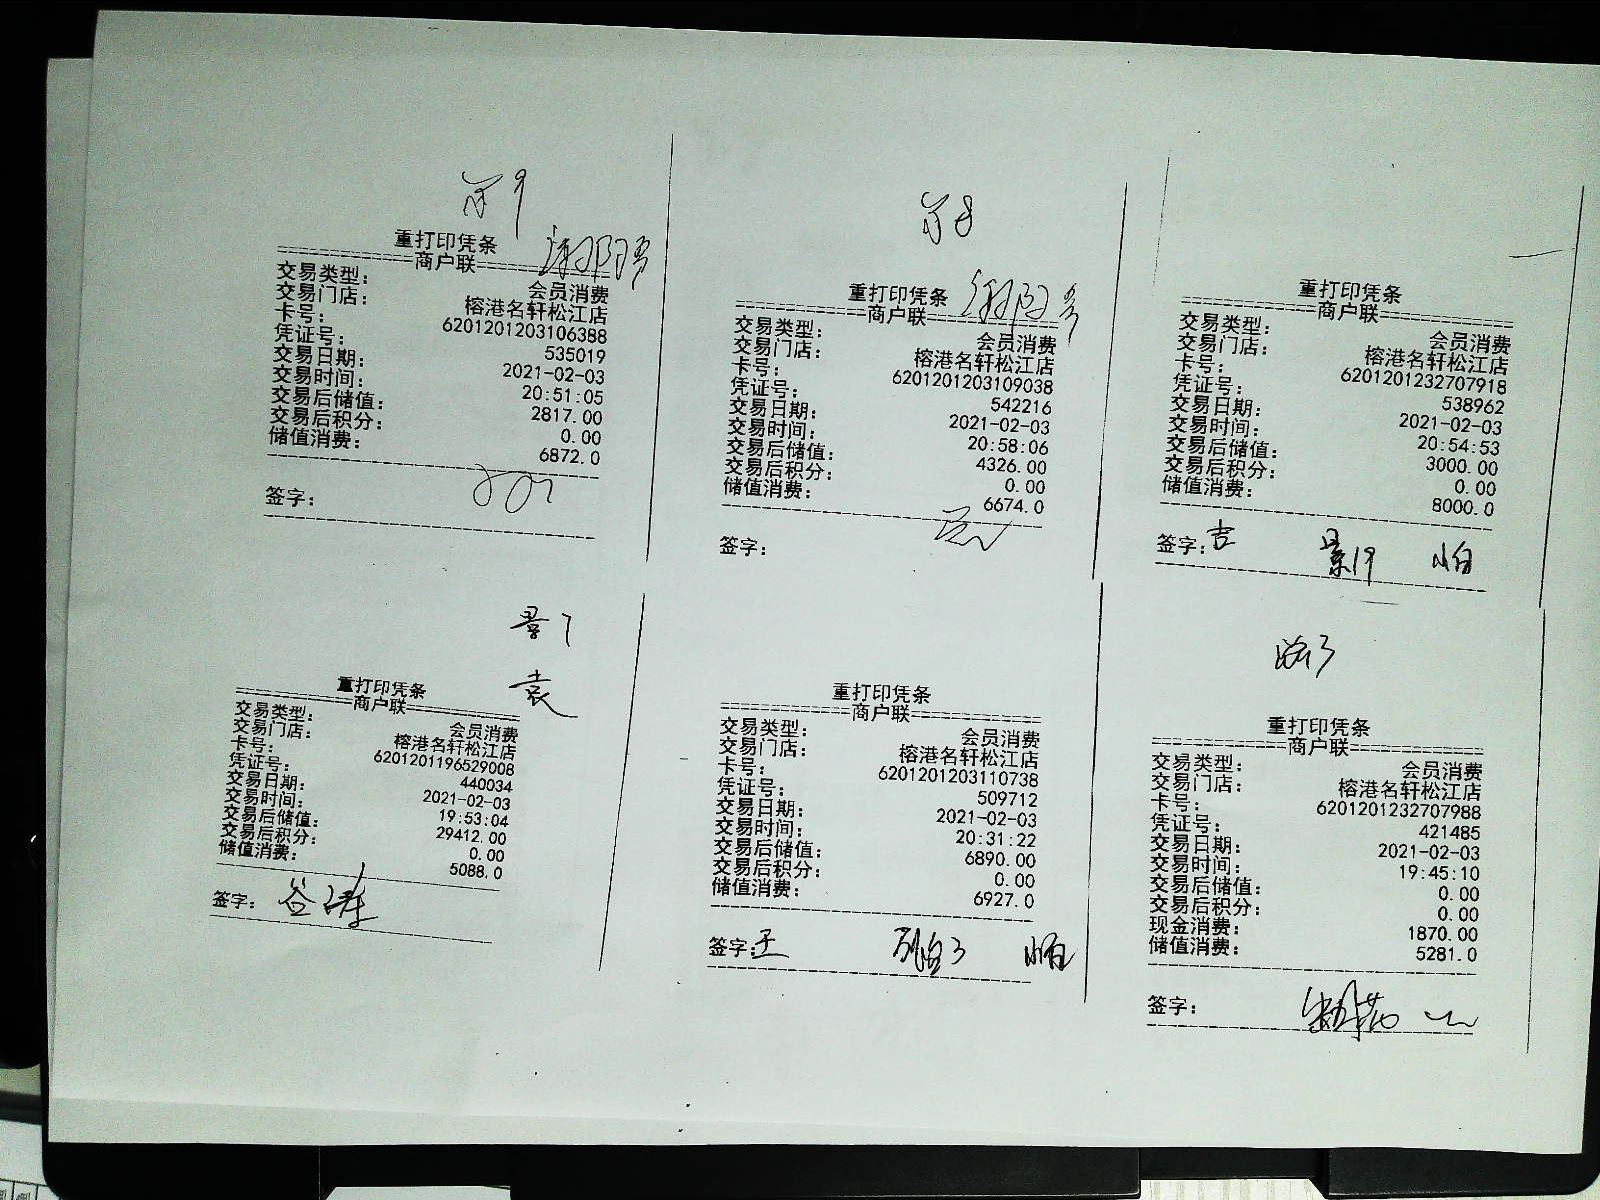 重打印凭条
商户联
交易类型： 会员消费
交易门店： 榕港名轩松江店
卡号： 6201201203106388
凭证号： 535019
交易日期： 2021-02-03
交易时间： 20:51:05
交易后储值： 2817.00
交易后积分： 0.00
储值消费： 6872.0
签字：
8
重打印凭条
商户联
交易类型： 会员消费
交易门店： 榕港名轩松江店
卡号： 6201201203109038
凭证号： 542216
交易日期： 2021-02-03
交易时间： 20:58:06
交易后储值： 4326.00
交易后积分： 0.00
储值消费： 6674.0
签字：
重打印凭条
商户联
交易类型： 会员消费
交易门店： 榕港名轩松江店
卡号： 6201201232707918
凭证号： 538962
交易日期： 2021-02-03
交易时间： 20:54:53
交易后储值： 3000.00
交易后积分： 0.00
储值消费： 8000.0
签字：吉 景19
袁
重打印凭条
商户联
交易类型： 会员消费
交易门店： 榕港名轩松江店
卡号： 6201201196529008
凭证号： 440034
交易日期： 2021-02-03
交易时间： 19:53:04
交易后储值： 29412.00
交易后积分： 0.00
储值消费： 5088.0
签字：
重打印凭条
商户联
交易类型： 会员消费
交易门店： 榕港名轩松江店
卡号： 6201201203110738
凭证号： 509712
交易日期： 2021-02-03
交易时间： 20:31:22
交易后储值： 6890.00
交易后积分： 0.00
储值消费： 6927.0
签字：王
重打印凭条
商户联
交易类型： 会员消费
交易门店： 榕港名轩松江店
卡号： 6201201232707988
凭证号： 421485
交易日期： 2021-02-03
交易时间： 19:45:10
交易后储值： 0.00
交易后积分： 0.00
现金消费： 1870.00
储值消费： 5281.0
签字：